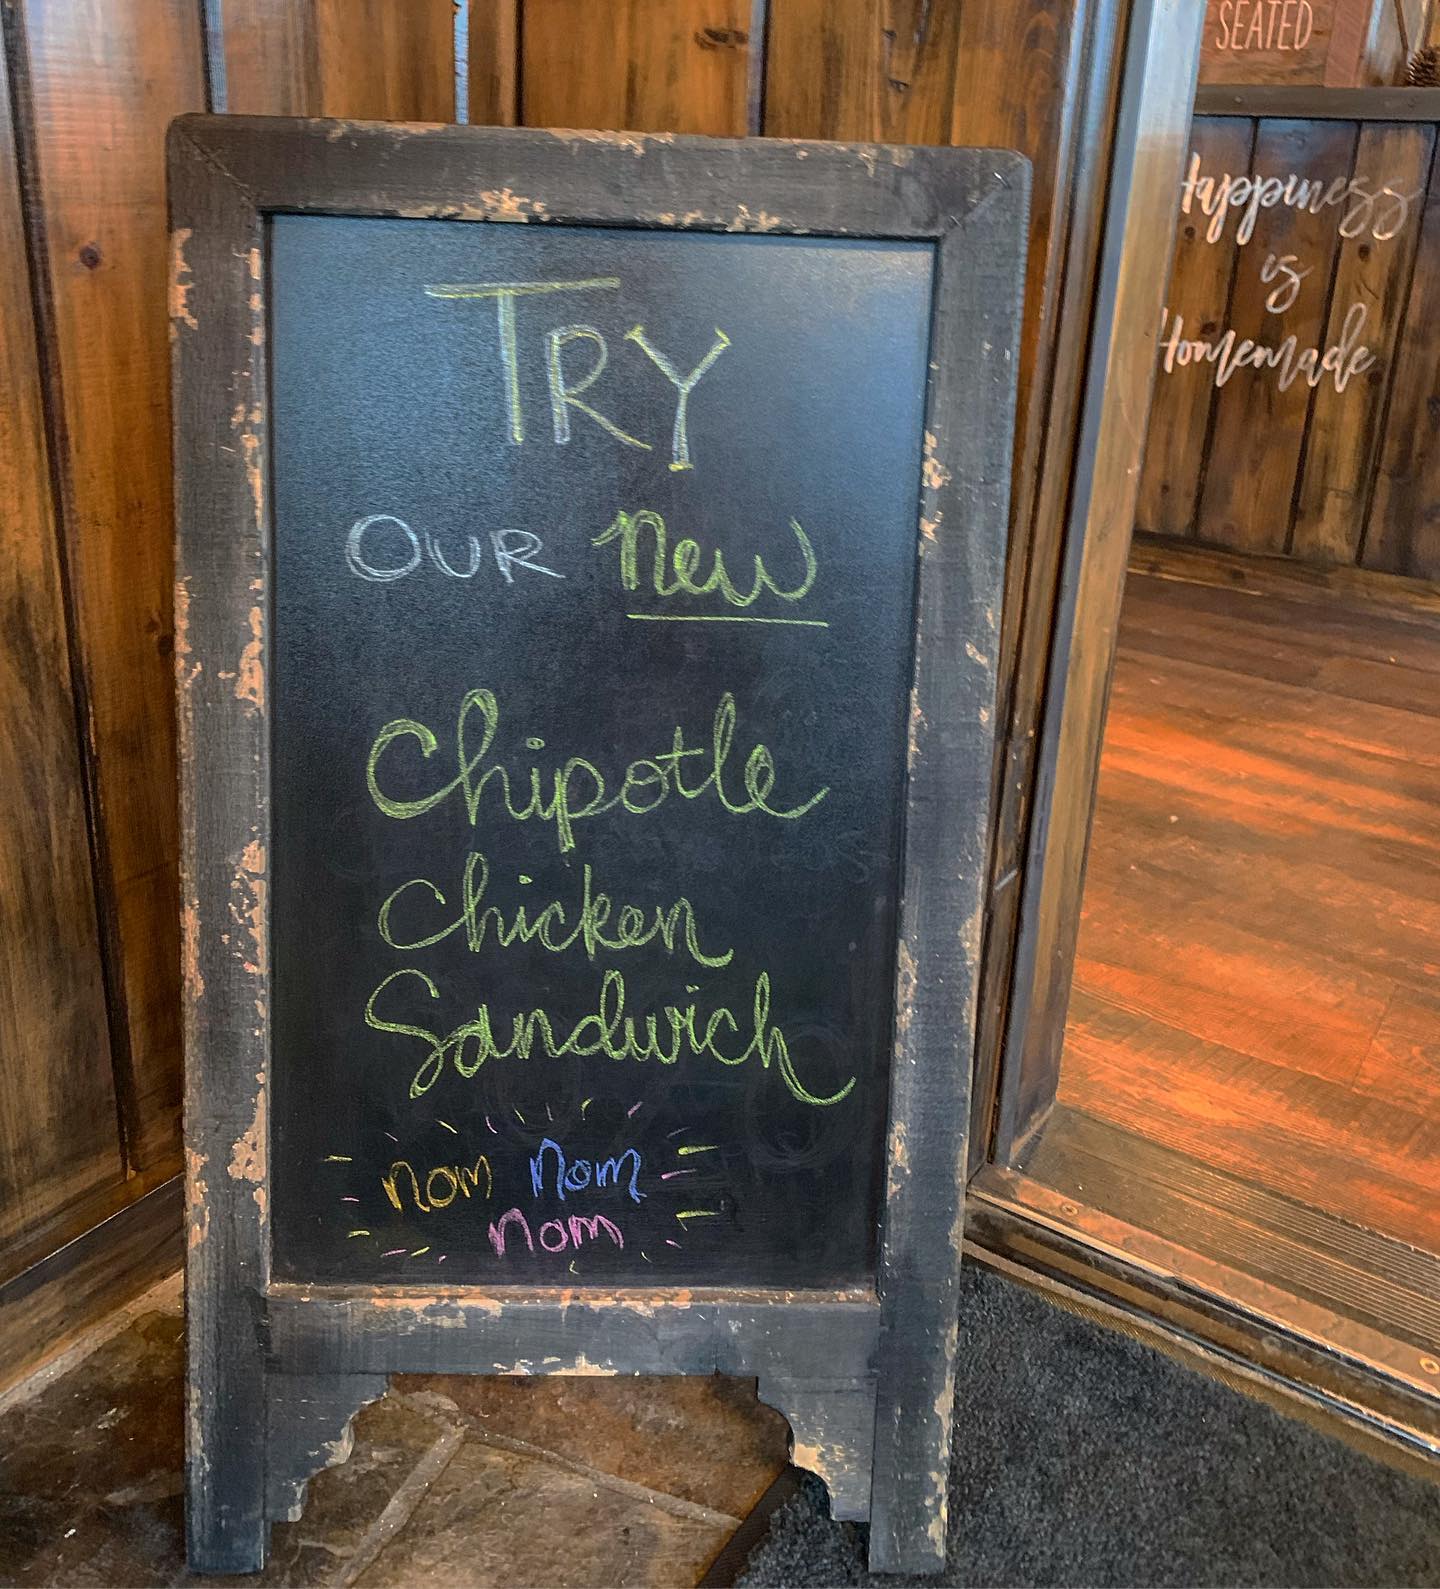 TRY
OUR new
Chipotle
Chicken
Sandwich
nom nom
nom
SEATED
Happiness
is
Homemade